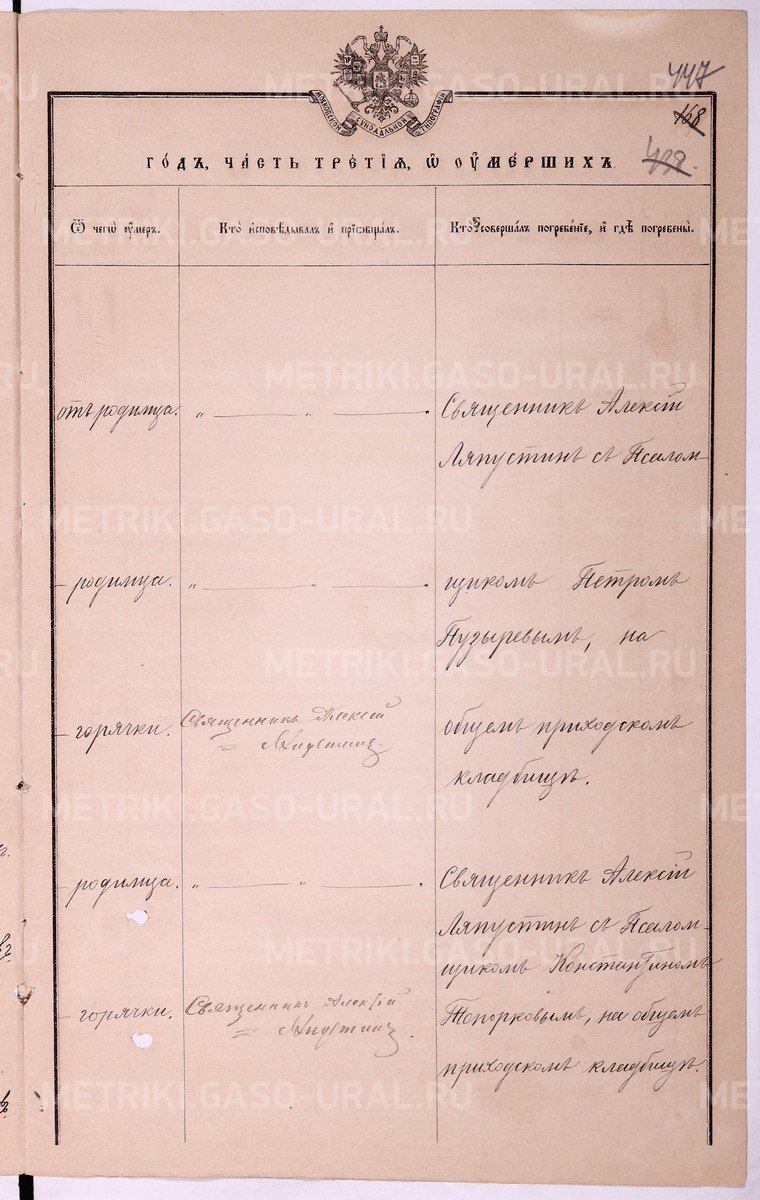 447
МОСКОВСКОЙ СѴНОДАЛЬНОЙ ТИПОГРАФІИ
168
438.
ГОДЪ, ЧАСТЬ ТРЕТІЯ, Ѿ ОУМЕРШИХЪ
Ѿ чегѡ оумеръ.
Кто исповѣдывалъ и пріобщалъ.
Кто совершалъ погребеніе, и гдѣ погребены.
отъ родимца. „ — „ —
Священникъ Алексій
Ляпустинъ съ Псалом-
– родимца. „ — „ —
щикомъ Петромъ
Пузыревымъ, на
– горячки.
Священникъ Алексій
Ляпустинъ.
общемъ приходскомъ
кладбищѣ.
– родимца. „ — „ —
Священникъ Алексій
Ляпустинъ съ Псалом-
щикомъ Константиномъ
– горячки.
Священникъ Алексій
Ляпустинъ.
Топорковымъ, на общемъ
приходскомъ кладбищѣ.
METRIKI.GASO-URAL.RU